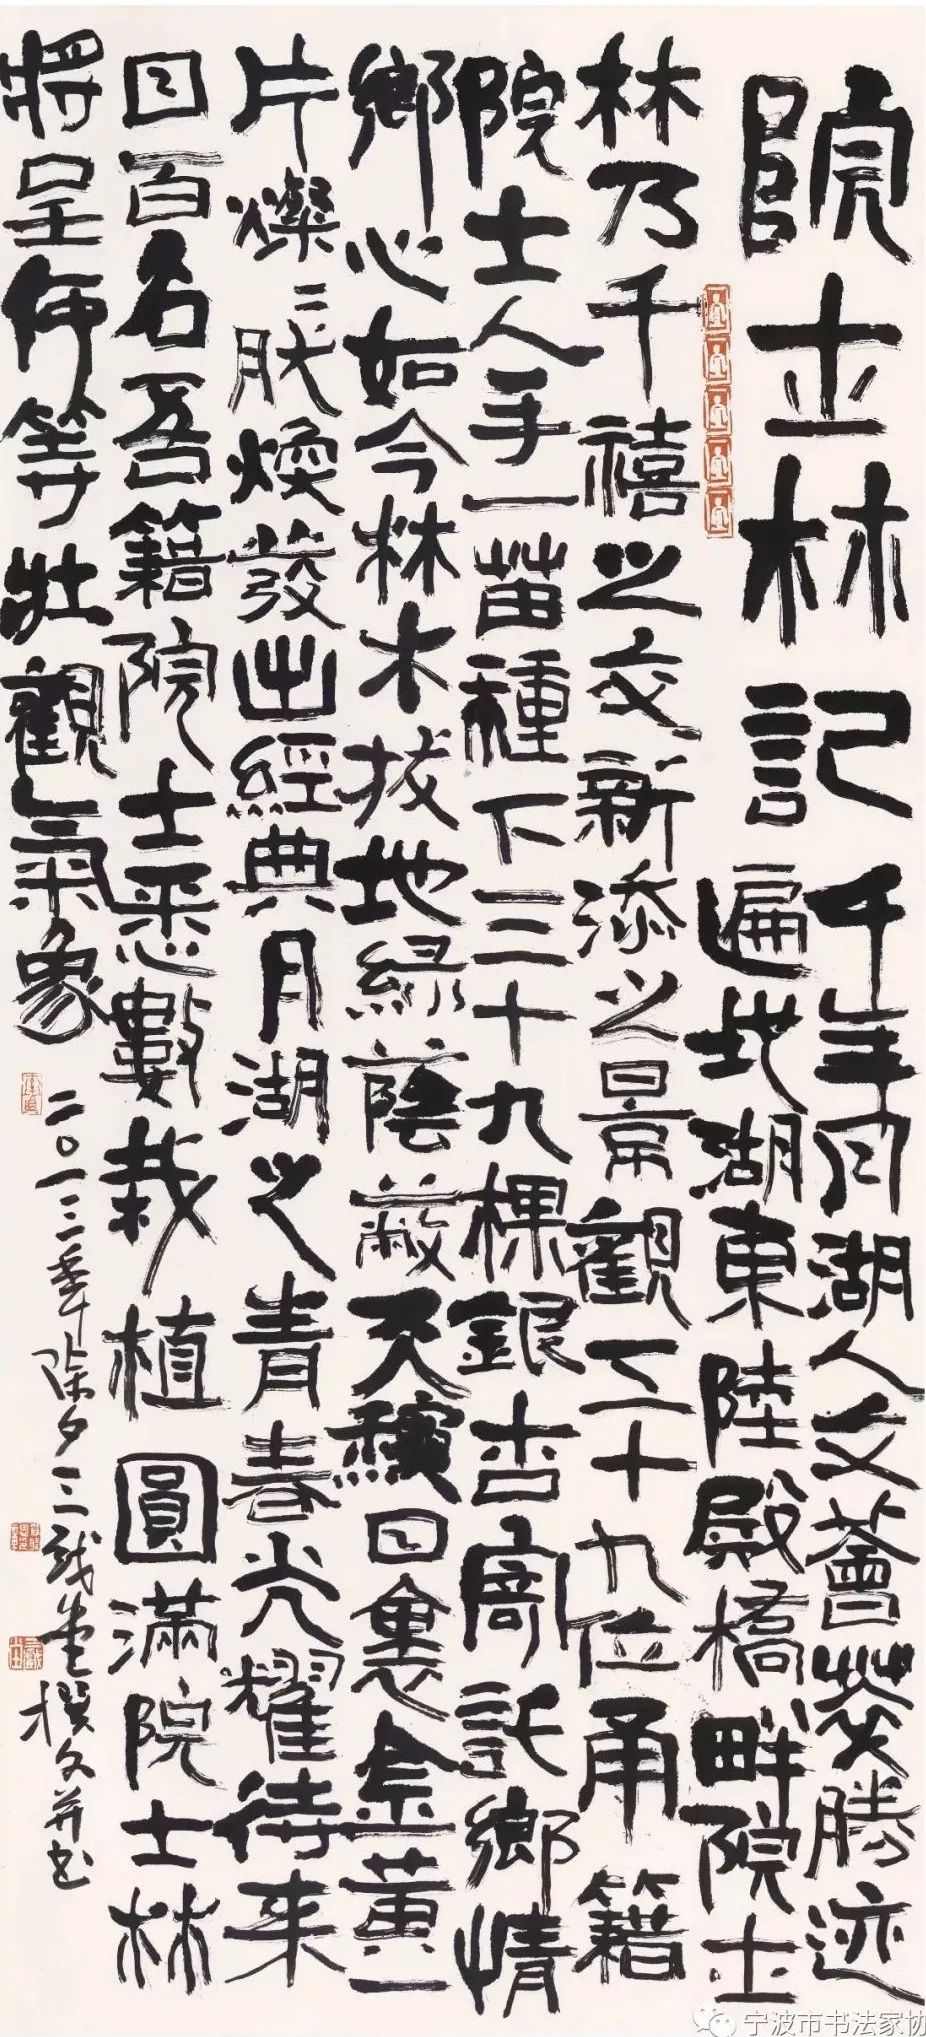 院士林記
千年月湖人文薈萃勝迹
遍地湖東陸殿橋畔院士
林乃千禧之交新添之景觀三十九位甬籍
院士人手一苗種下三十九棵銀杏寄託鄉情
鄉心如今林木拔地綠蔭蔽天龝日裏金黃一
片二燦二肰煥發出經典月湖之青春光耀待來
日百名吾籍院士悉數栽植圓滿院士林
將呈何等壯觀氣象
二〇一三年除夕三戟堂撰文并书
宁波市书法家协